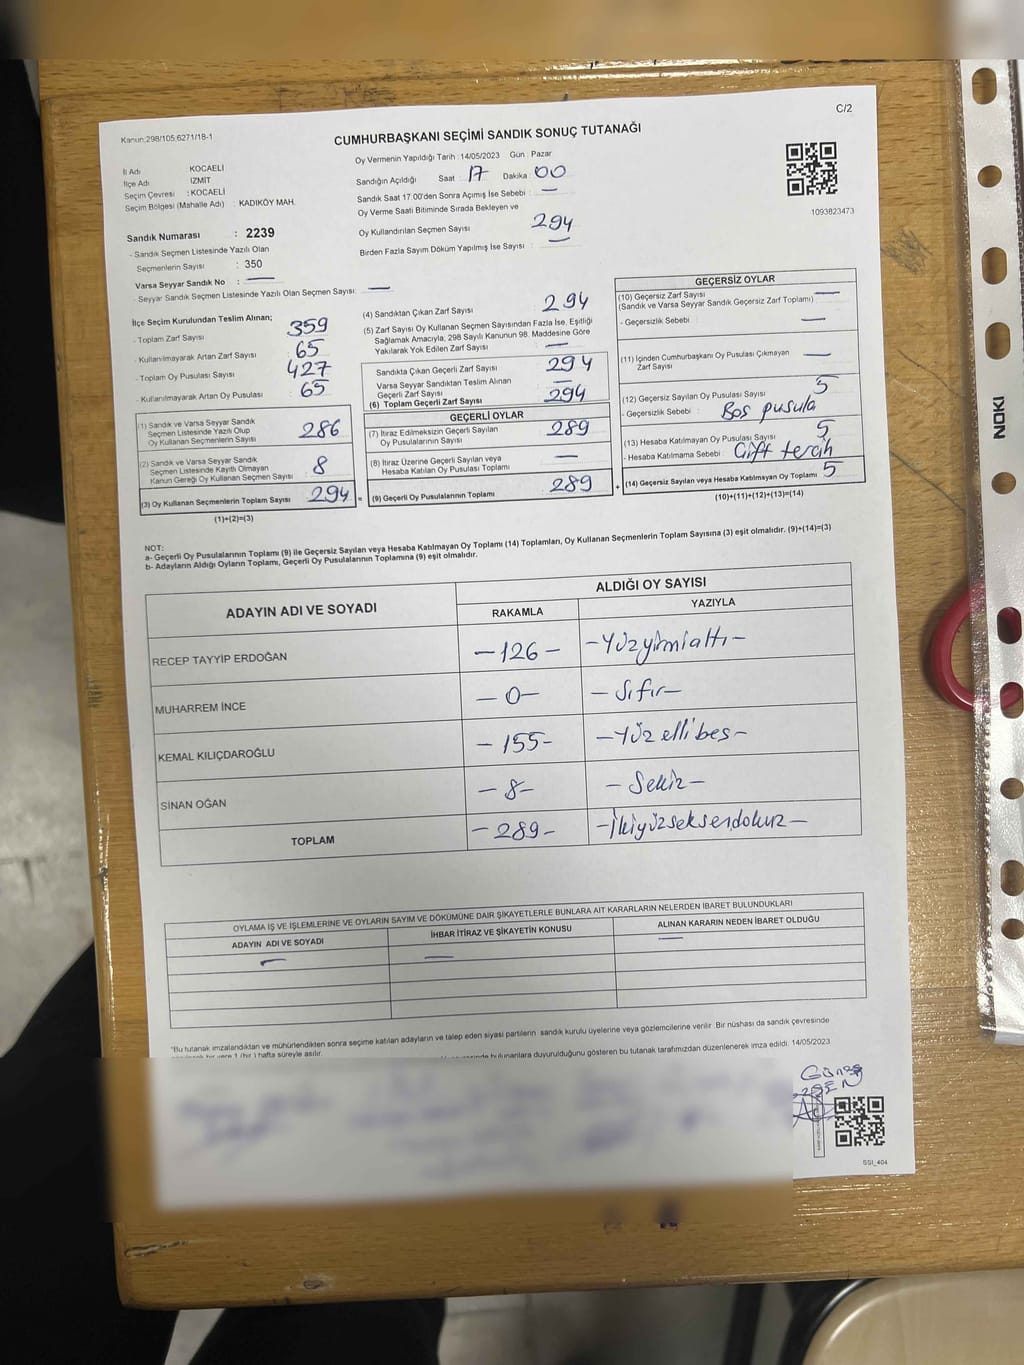 C/2
Kanun:298/105,6271/18-1
CUMHURBAŞKANI SEÇİMİ SANDIK SONUÇ TUTANAĞI
Oy Vermenin Yapıldığı Tarih :14/05/2023 Gün : Pazar
İl Adı KOCAELİ
İlçe Adı İZMİT
Seçim Çevresi : KOCAELİ
Seçim Bölgesi (Mahalle Adı) : KADIKÖY MAH.
Sandığın Açıldığı Saat : 17 Dakika : 00
Sandık Saat 17.00'den Sonra Açımış İse Sebebi : —
Oy Verme Saati Bitiminde Sırada Bekleyen ve
Oy Kullandırılan Seçmen Sayısı : 294
Birden Fazla Sayım Döküm Yapılmış İse Sayısı : —
1093823473
Sandık Numarası : 2239
- Sandık Seçmen Listesinde Yazılı Olan
Seçmenlerin Sayısı : 350
Varsa Seyyar Sandık No : —
- Seyyar Sandık Seçmen Listesinde Yazılı Olan Seçmen Sayısı: —
İlçe Seçim Kurulundan Teslim Alınan;
- Toplam Zarf Sayısı 359
- Kullanılmayarak Artan Zarf Sayısı 65
- Toplam Oy Pusulası Sayısı 427
- Kullanılmayarak Artan Oy Pusulası 65
(1) Sandık ve Varsa Seyyar Sandık
Seçmen Listesinde Yazılı Olup
Oy Kullanan Seçmenlerin Sayısı 286
(2) Sandık ve Varsa Seyyar Sandık
Seçmen Listesinde Kayıtlı Olmayan
Kanun Gereği Oy Kullanan Seçmen Sayısı 8
(3) Oy Kullanan Seçmenlerin Toplam Sayısı 294 =
(1)+(2)=(3)
(4) Sandıktan Çıkan Zarf Sayısı 294
(5) Zarf Sayısı Oy Kullanan Seçmen Sayısından Fazla İse, Eşitliği
Sağlamak Amacıyla, 298 Sayılı Kanunun 98. Maddesine Göre
Yakılarak Yok Edilen Zarf Sayısı —
Sandıkta Çıkan Geçerli Zarf Sayısı 294
Varsa Seyyar Sandıktan Teslim Alınan
Geçerli Zarf Sayısı —
(6) Toplam Geçerli Zarf Sayısı 294
GEÇERLİ OYLAR
(7) İtiraz Edilmeksizin Geçerli Sayılan
Oy Pusulalarının Sayısı 289
(8) İtiraz Üzerine Geçerli Sayılan veya
Hesaba Katılan Oy Pusulası Toplamı —
(9) Geçerli Oy Pusulalarının Toplamı 289 +
GEÇERSİZ OYLAR
(10) Geçersiz Zarf Sayısı
(Sandık ve Varsa Seyyar Sandık Geçersiz Zarf Toplamı) —
- Geçersizlik Sebebi : —
(11) İçinden Cumhurbaşkanı Oy Pusulası Çıkmayan
Zarf Sayısı —
(12) Geçersiz Sayılan Oy Pusulası Sayısı
- Geçersizlik Sebebi : Boş pusula
(13) Hesaba Katılmayan Oy Pusulası Sayısı
- Hesaba Katılmama Sebebi : Çift tercih
(14) Geçersiz Sayılan veya Hesaba Katılmayan Oy Toplamı 5
(10)+(11)+(12)+(13)=(14)
NOT:
a- Geçerli Oy Pusulalarının Toplamı (9) ile Geçersiz Sayılan veya Hesaba Katılmayan Oy Toplamı (14) Toplamları, Oy Kullanan Seçmenlerin Toplam Sayısına (3) eşit olmalıdır. (9)+(14)=(3)
b- Adayların Aldığı Oyların Toplamı, Geçerli Oy Pusulalarının Toplamına (9) eşit olmalıdır.
ADAYIN ADI VE SOYADI
ALDIĞI OY SAYISI
RAKAMLA YAZIYLA
RECEP TAYYİP ERDOĞAN —126— —Yüzyirmialtı—
MUHARREM İNCE —0— —Sıfır—
KEMAL KILIÇDAROĞLU —155— —Yüzellibeş—
SİNAN OĞAN —8— —Sekiz—
TOPLAM —289— —İkiyüzseksendokuz—
OYLAMA İŞ VE İŞLEMLERİNE VE OYLARIN SAYIM VE DÖKÜMÜNE DAİR ŞİKAYETLERLE BUNLARA AİT KARARLARIN NELERDEN İBARET BULUNDUKLARI
ADAYIN ADI VE SOYADI İHBAR İTİRAZ VE ŞİKAYETİN KONUSU ALINAN KARARIN NEDEN İBARET OLDUĞU
— — —
*Bu tutanak imzalandıktan ve mühürlendikten sonra seçime katılan adayların ve talep eden siyasi partilerin sandık kurulu üyelerine veya gözlemcilerine verilir. Bir nüshası da sandık çevresinde
bir yere 1 (bir) hafta süreyle asılır.
bulunanlara duyurulduğunu gösteren bu tutanak tarafımızdan düzenlenerek imza edildi. 14/05/2023
SSI_404
NOKI